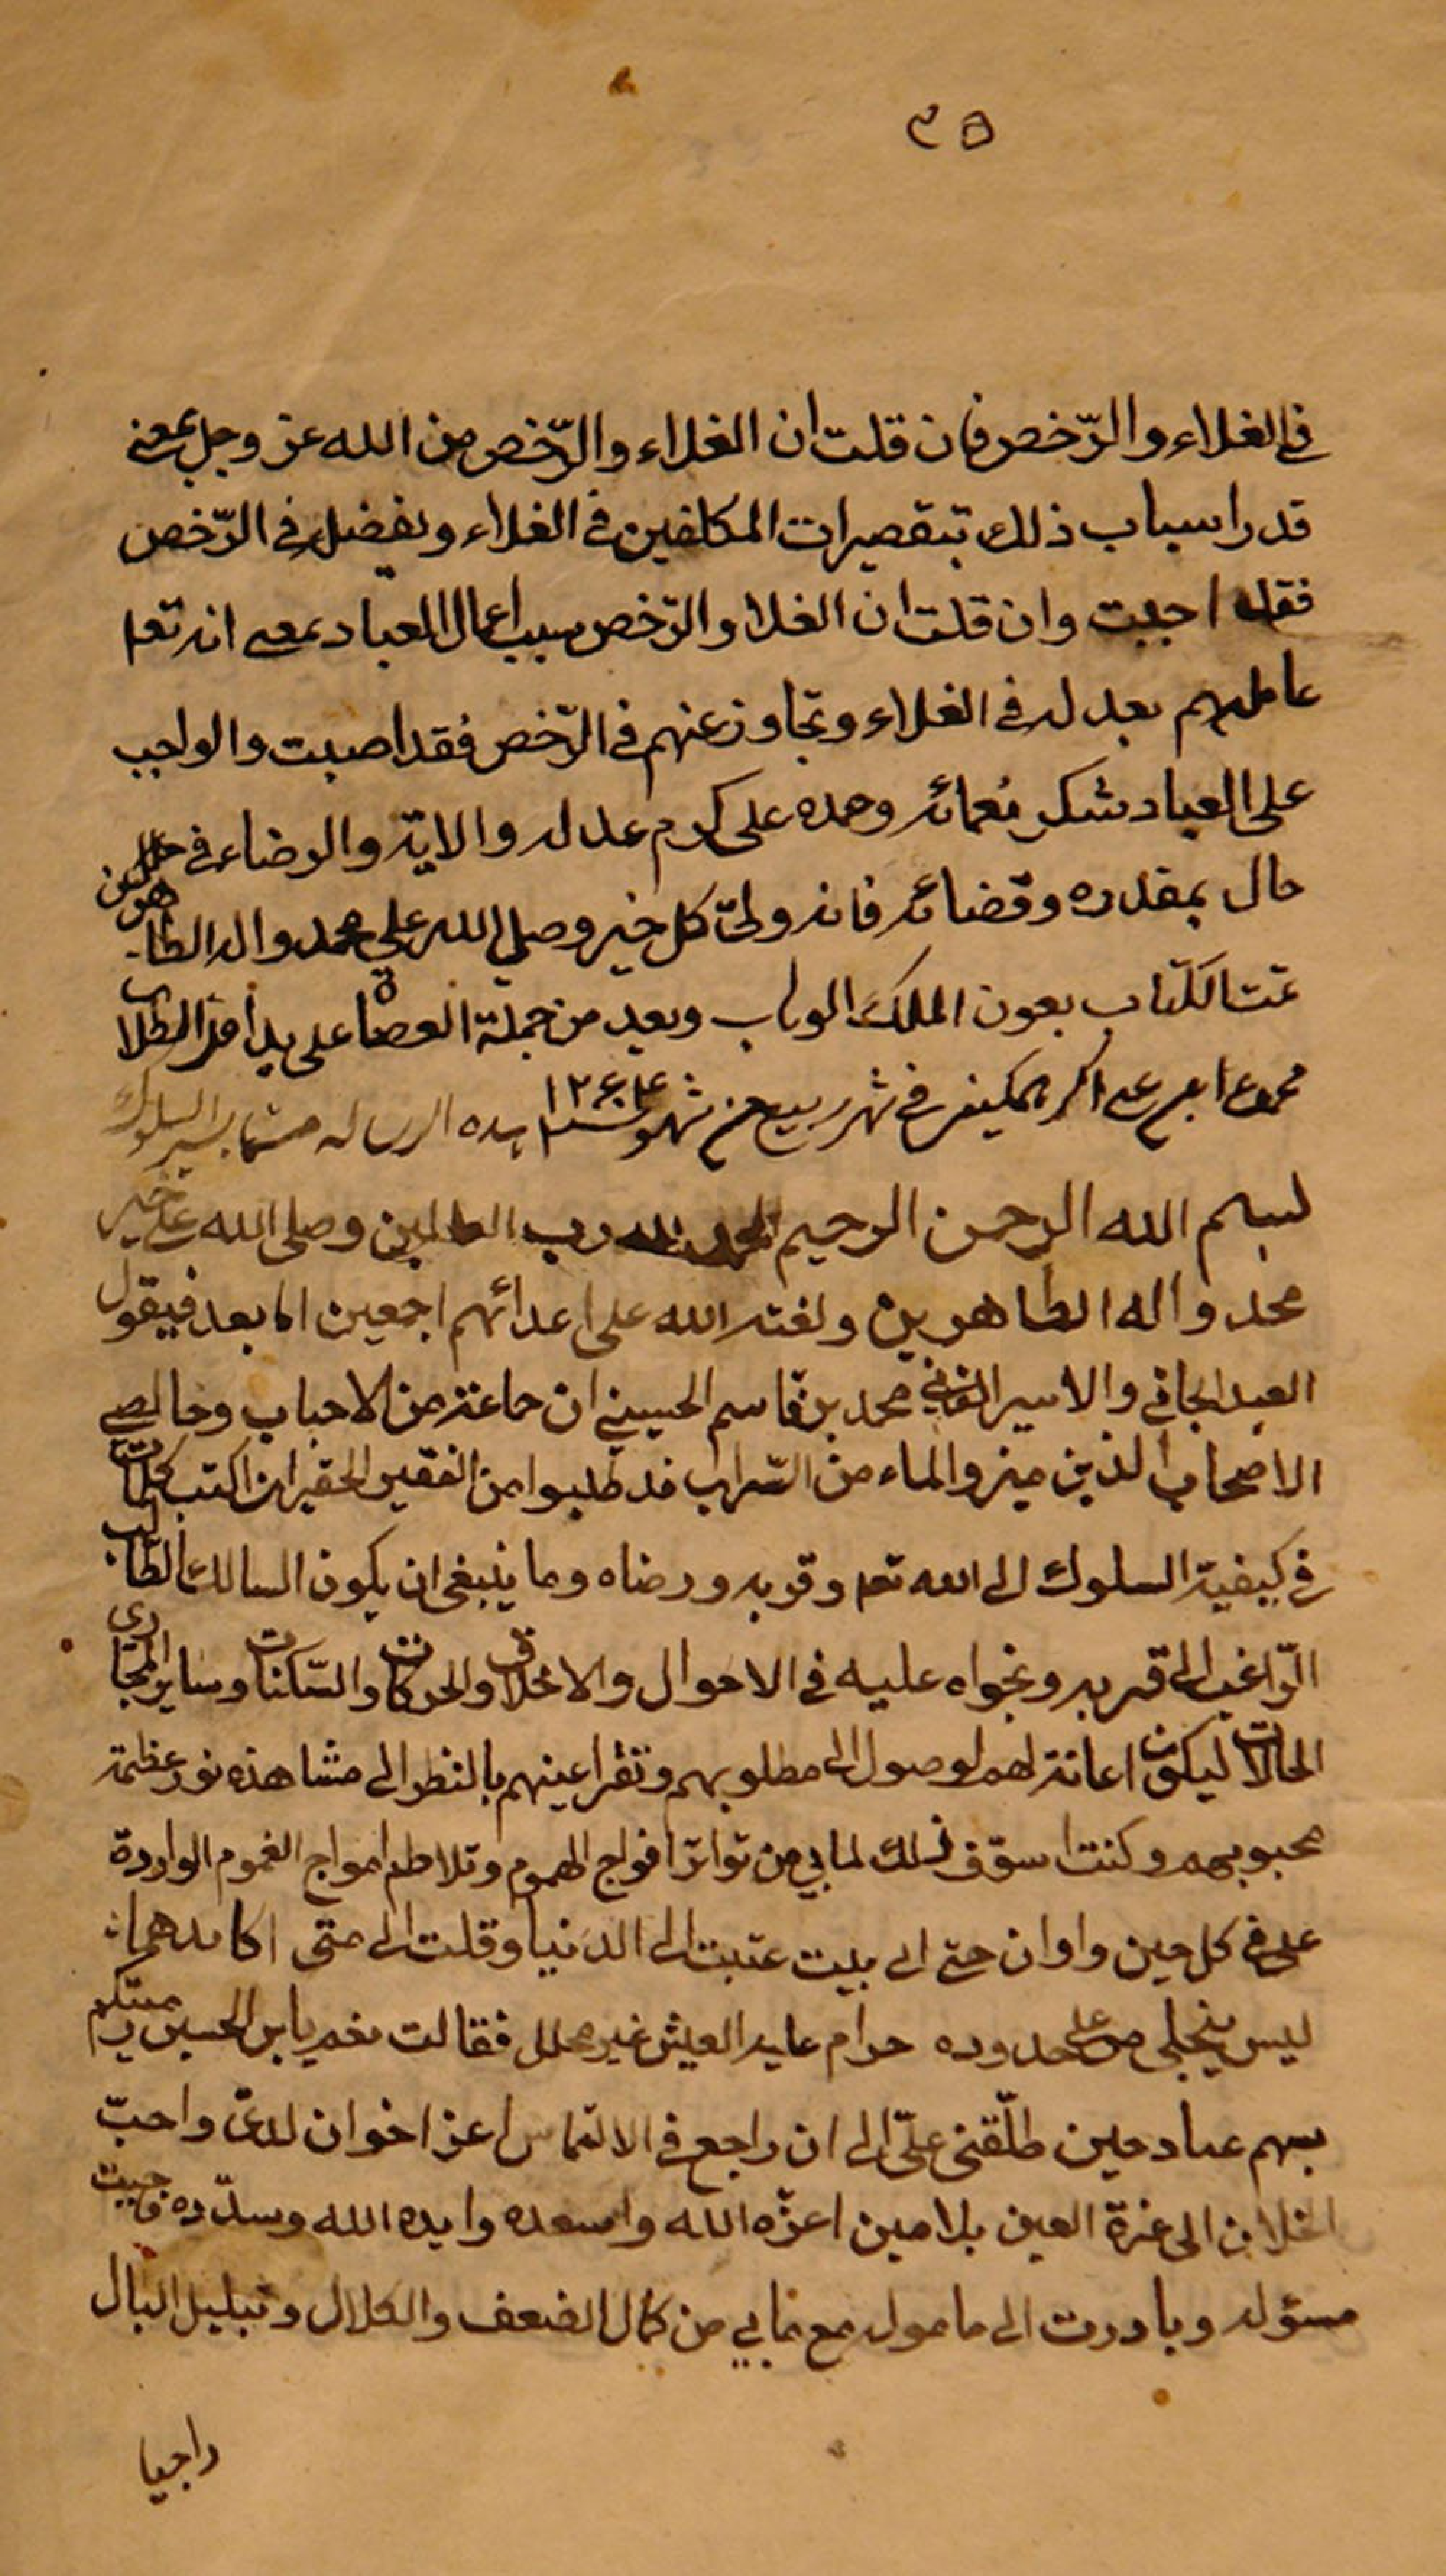 ٣٥
في الغلاء والرّخص فان قلت ان الغلاء والرّخص من الله عز وجل بمعنى
قدر اسباب ذلك بتقصيرات المكلفين في الغلاء وبفضله في الرّخص
فقد اجبت وان قلت ان الغلا والرّخص بسبب اعمال العباد بمعنى انه تعا
عاملهم بعدله في الغلاء وتجاوز عنهم في الرّخص فقد اصبت والواجب
على العباد شكر نعمائه وحمده على كرم عدله والايّه والرضاء في كل
حال بمقدره وقضائه فانه وليّ كل خير وصلى الله على محمد واله الطاهرين
تمت الكتاب بعون الملك الوهاب وبعد من جملة العصاة على يد اقل الطلاب
في شهر ربيع من شهور سنه ١٢٦٤ هذه الرساله
بسم الله الرحمن الرحيم الحمد لله رب العالمين وصلى الله على خير
محمد واله الطاهرين ولعنة الله على اعدائهم اجمعين اما بعد فيقول
العبد الجاني والاسير الفاني محمد بن قاسم الحسيني ان جماعة من الاحباب وخالصي
الاصحاب الذين ميزوا الماء من السّراب قد طلبوا من الفقير الحقير ان اكتب كلمات
في كيفية السلوك الى الله تعا وقربه ورضاه وما ينبغي ان يكون السالك الطالب
الرّاغب الى قربه ونجواه عليه في الاحوال والاخلاق والحركات والسّكنات وساير المجاري
الحالات ليكون اعانة لهم لوصول الى مطلوبهم وتقر اعينهم بالنظر الى مشاهدة نور عظمة
محبوبهم وكنت اسوّف ذلك لما بي من تواتر افواج الهموم وتلاطم امواج الغموم الواردة
على في كل حين واوان حتى الى بيت عتبت الى الدنيا وقلت الى متى اكابد هما
ليس ينجلي حدوده حرام عليه العيش غير محلل فقالت نعم يابن الحسين رميتكم
بسهم عناد حين طلّقني عليّ الى ان راجع في الالتماس اعز اخوان لديّ واحبّ
الخلان الى غرة العين بلا مين اعزّه الله واسعده وايده الله وسدّده فاجبت
مسؤله وبادرت الى ماموله مع مابي من كمال الضعف والكلال وتبلبل البال
راجيا